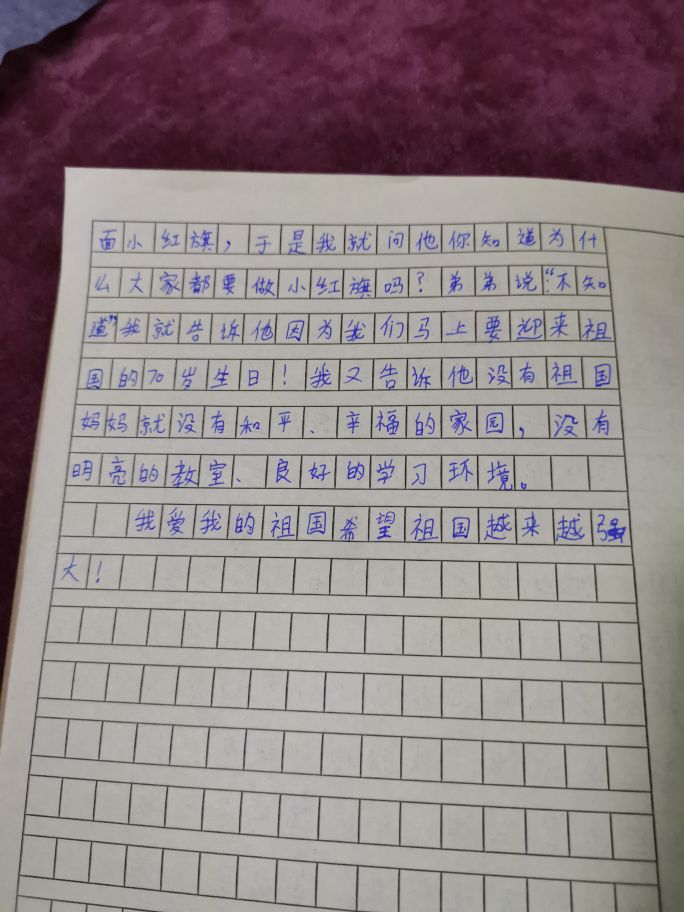 面小红旗，于是我就问他你知道为什
么大家都要做小红旗吗？弟弟说：“不知
道”我就告诉他因为我们马上要迎来祖
国的70岁生日！我又告诉他没有祖国
妈妈就没有和平、辛福的家园，没有
明亮的教室、良好的学习环境。
我爱我的祖国希望祖国越来越强
大！